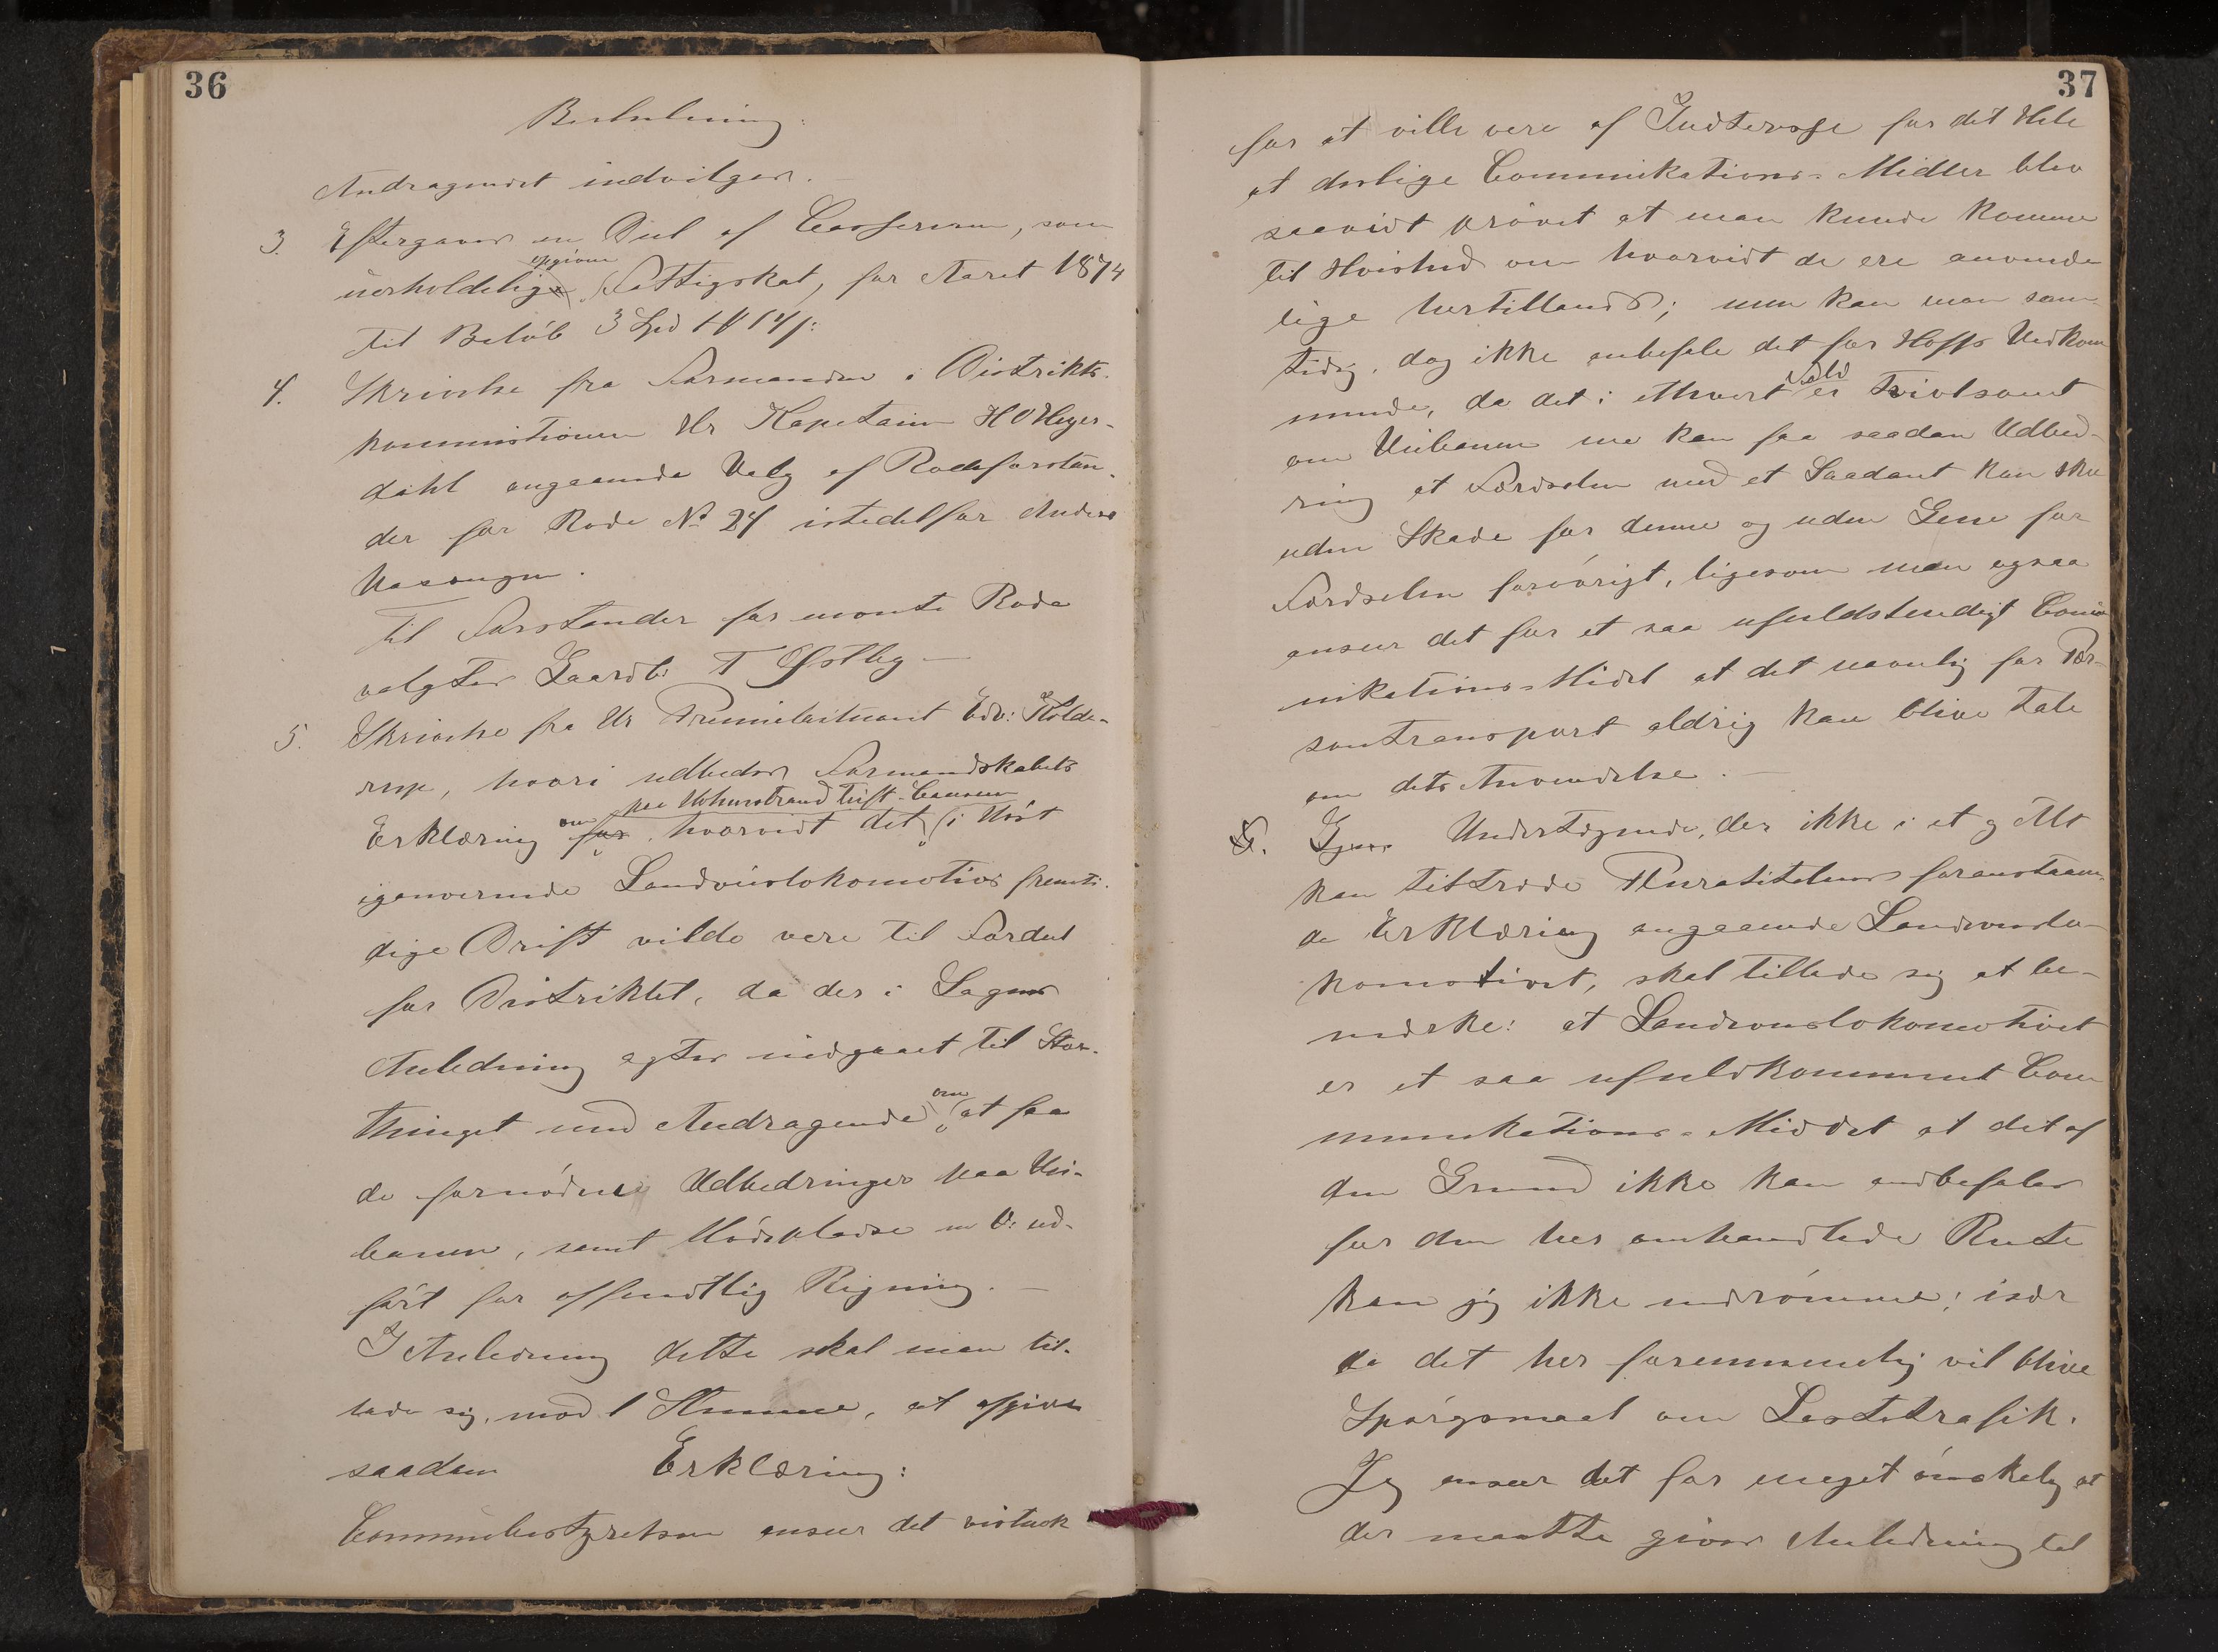 36
Beslutning:
Andragendet indvilges.
3. Eftergaves en Deel af Cassereren, som
uerholdelig opgiven Fattigskat, for Aaret 1874
til Beløb 3 Spd
4. Skrivelse fra Formanden i Distrikts-
kommissionen Hr Kapetain H O Heyer-
dahl angaaende Valg af Rodeforstan-
der for Rode No 24 istedetfor Anders
Til Forstander for nævnte Rode
valgtes Gaardb: T Østby
5. Skrivelse fra Hr Premierleitnant Edv:
rup, hvori udbedes Formandskabets
paa Holmestrand Tuft-Banen
Erklæring om for hvorvidt det i Høst
igangværende Landveislokomotivs fremti-
dige Drift vilde være til Fordel
for Distriktet, da der i Sagens
Anledning agtes indgaaet til Stor-
thinget med Andragende om at faa
de fornødne Udbedringer paa Vei-
banen, samt Mødepladse m V: ud-
ført for offendtlig Regning.
I Anledning dette skal man til-
lade sig, mod 1 Stemme, at afgive
saadan Erklæring:
Communbestyrelsen anser det vistnok
37
for at ville være af Indteresse for det Hele
at deslige Communikations-Midler blev
saavidt prøvet at man kunde komme
til Vished om hvorvidt de ere anvende-
lige hertillands; men kan man sam-
tidig dog ikke anbefale det for Hoffs Vedkom
mende, da det i ethvert Fald er Tvivlsomt
om Veibanen me kan faa saadan Udbed-
ring at Færdselen med et Saadant kan ske
uden Skade for denne og uden Gene for
Færdselen forøvrigt, ligesom man ogsaa
anseer det for et saa ufuldstendigt Comu
nikations-Midel at det navnlig for Per-
sontransport aldrig kan blive Tale
om dets Anvendelse.
Undertegnede, der ikke i et og Alt
kan tiltræde Pluralitetens foranstaaen-
de Erklæring angaaende Landveislo-
komotivet, skal tillade sig at be-
mærke: at Landveislokomotivet
er et saa ufuldkomment Com
munikations-Middel at det af
den Grund ikke kan andbefales
for den her omhandlede Rute
kan jeg ikke indrømme; især
da det her fornemmelig vil blive
Spørgsmaal om Lastetrafik.
Jeg anseer det for meget ønskelig at
der maatte gives Anledning tel